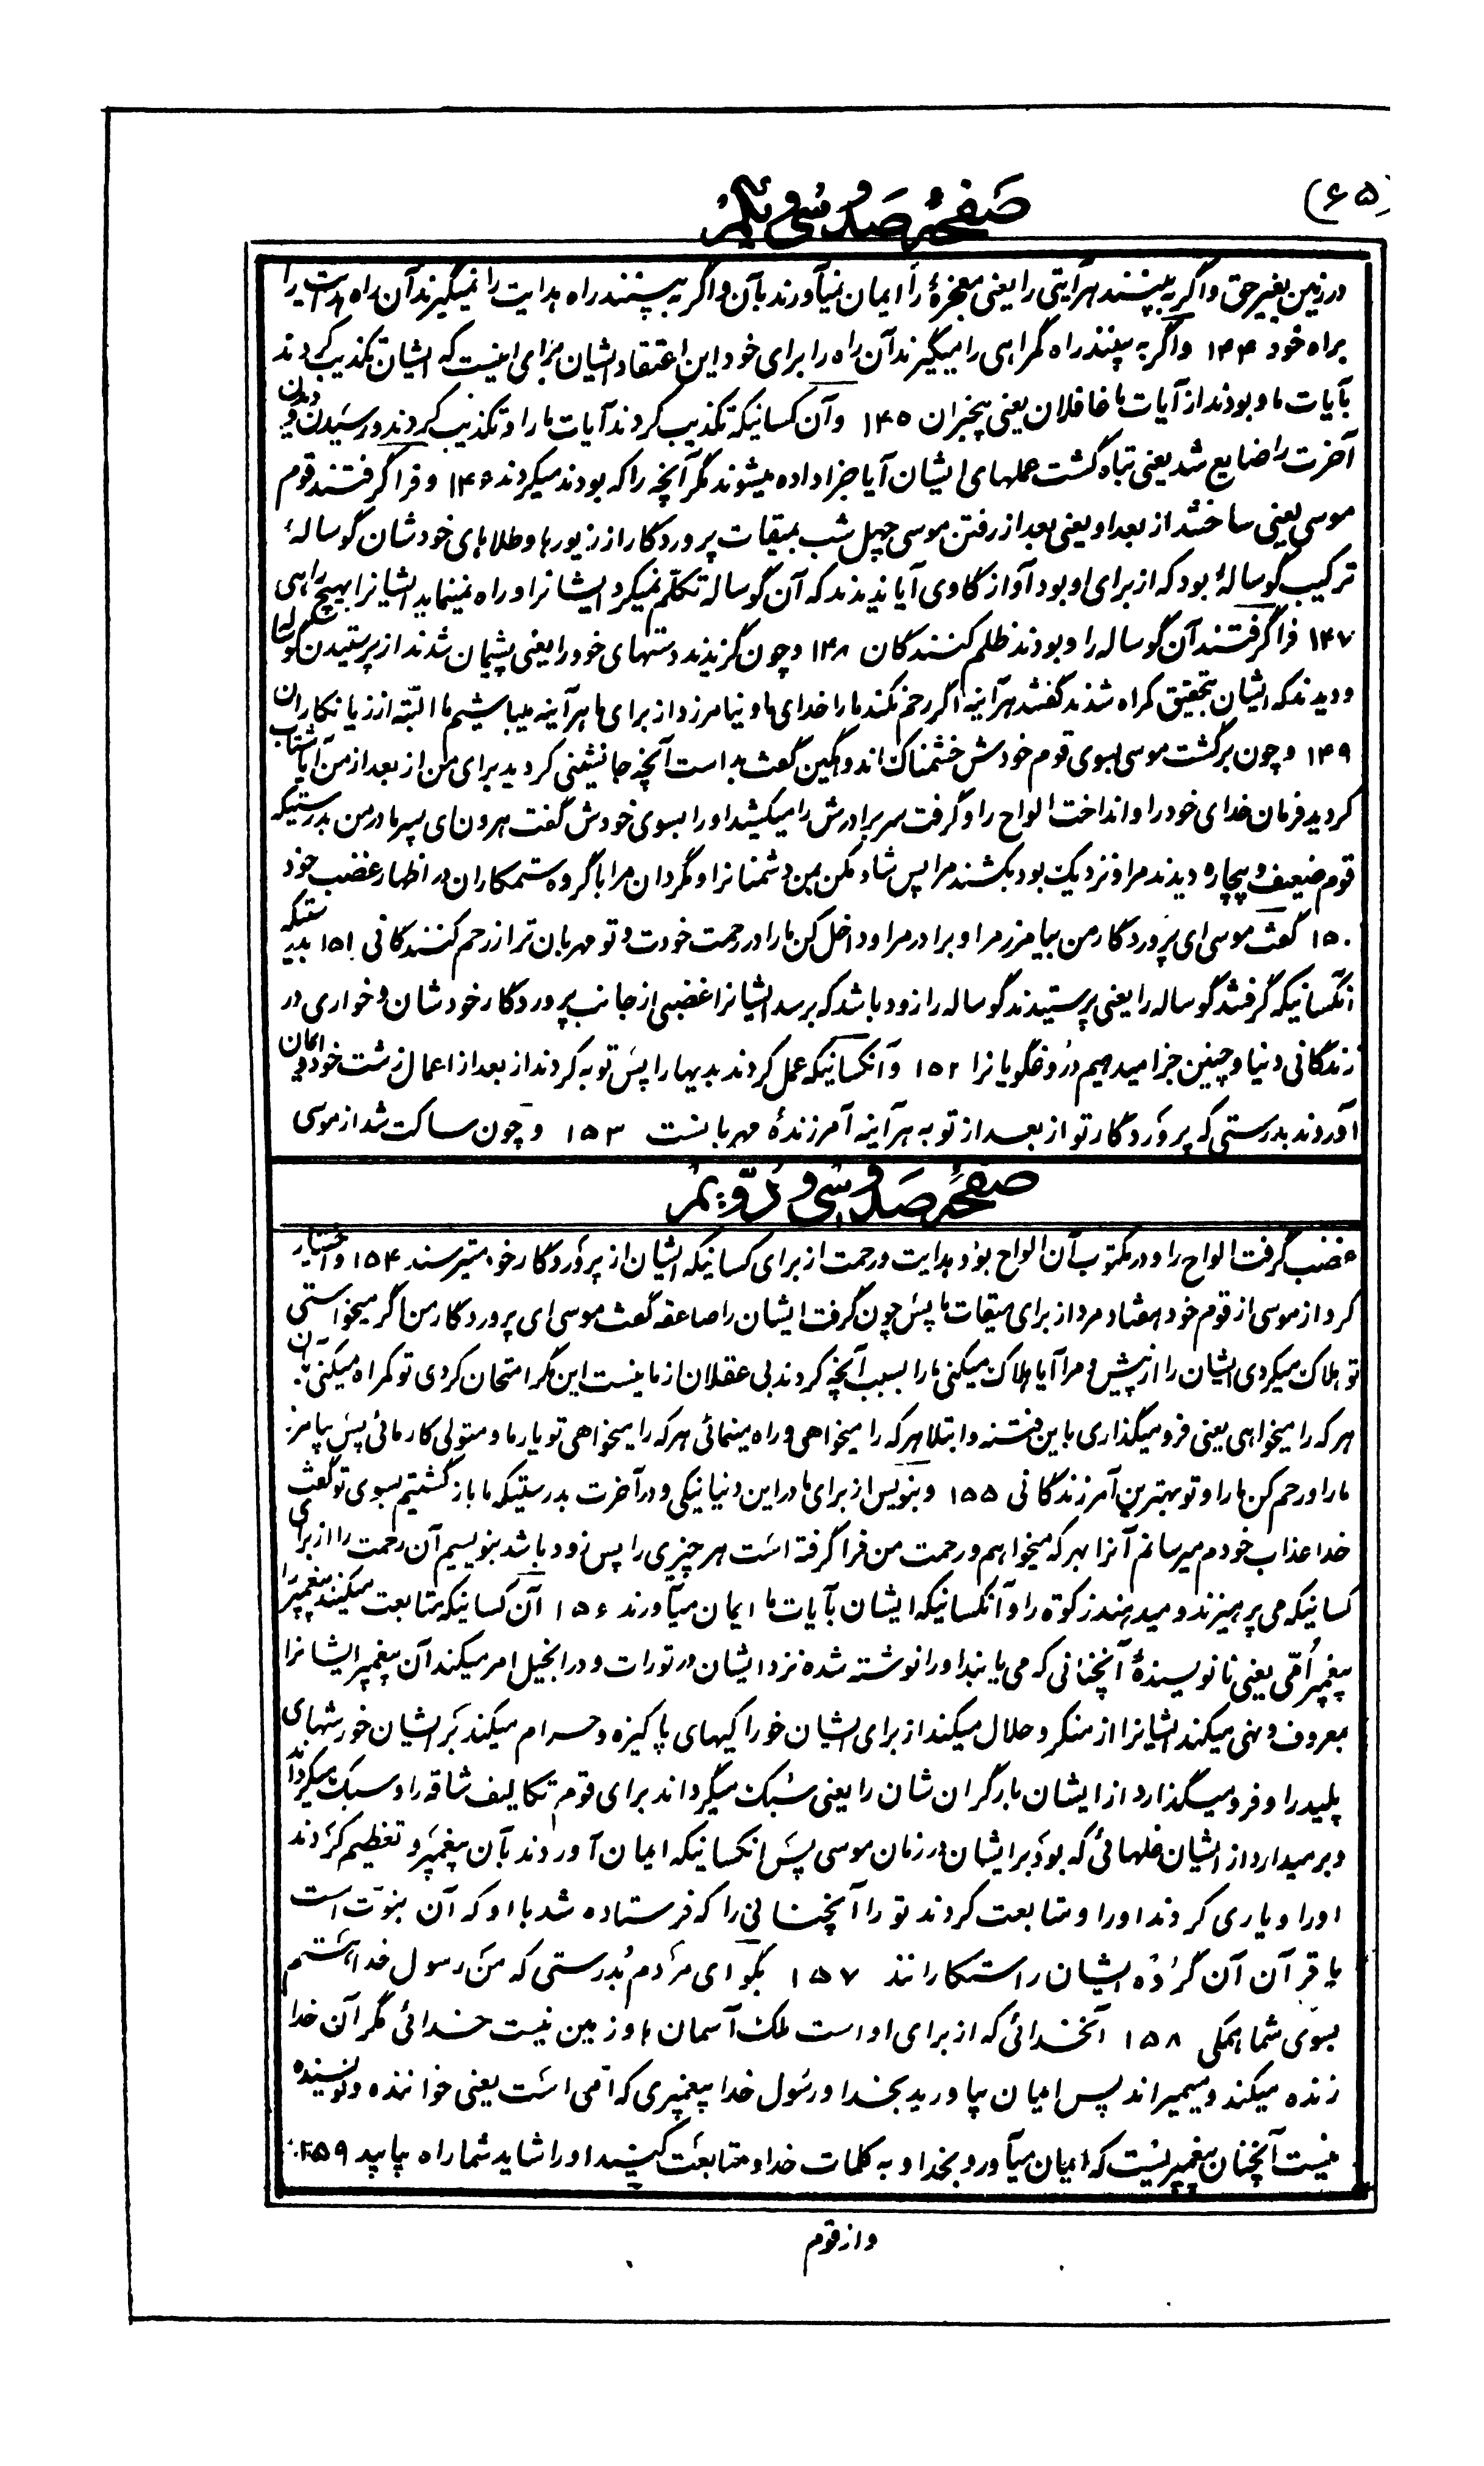 (۶۵)
صفحهٔ صد و سی و یکم
در زمین بغیر حق و اگر به بینند هر آیتی را یعنی معجزهٔ را ایمان نمیآورند بآن و اگر به بینند راه هدایت را نمیگیرند آن راه هدایت را
براه خود ۱۴۴ و اگر به بینند راه گمراهی را میگیرند آن راه را برای خود این اعتقاد ایشان برای اینست که ایشان تکذیب کردند
بآیات ما و بودند از آیات ما غافلان یعنی بیخبران ۱۴۵ و آن کسانیکه تکذیب کردند آیات ما را و تکذیب کردند و رسیدن و دیدن
آخرت را ضایع شد یعنی تباه گشت عملهای ایشان آیا جزا داده میشوند مگر آنچه را که بودند میکردند ۱۴۶ و فرا گرفتند قوم
موسی یعنی ساختند از بعد او یعنی بعد از رفتن موسی چهل شب بمیقات پروردگار از زیورها و طلاهای خودشان گوسالهٔ
ترکیب گوسالهٔ بود که از برای او بود آواز گاوی آیا ندیدند که آن گوساله تکلّم نمیکرد ایشانرا و راه نمینماید ایشانرا بهیچ راهی
۱۴۷ فرا گرفتند آن گوساله را و بودند ظلم کنندگان ۱۴۸ و چون گزیدند دستهای خود را یعنی پشیمان شدند از پرستیدن گوساله
و دیدند که ایشان بتحقیق گمراه شدند گفتند هرآینه اگر رحم نکند ما را خدای ما و نیامرزد از برای ما هرآینه میباشیم ما البتّه از زیانکاران
۱۴۹ و چون برگشت موسی بسوی قوم خودش خشمناک اندوهگین گفت بد است آنچه جانشینی کردید برای من از بعد از من آیا شتاب
کردید فرمان خدای خود را و انداخت الواح را و گرفت سر برادرش را میکشید او را بسوی خودش گفت هرون ای پسر مادر من بدرستیکه
قوم ضعیف و بیچاره دیدند مرا و نزدیک بود بکشند مرا پس شاد مکن بمن دشمنانرا و مگردان مرا با گروه ستمکاران در اظهار غضب خود
۱۵۰ گفت موسی ای پروردگار من بیامرز مرا و برادر مرا و داخل کن ما را در رحمت خودت و تو مهربان تر از رحم کنندگانی ۱۵۱ بدرستیکه
آنکسانیکه گرفتند گوساله را یعنی پرستیدند گوساله را زود باشد که برسد ایشانرا غضبی از جانب پروردگار خودشان و خواری در
زندگانی دنیا و چنین جزا میدهیم دروغگویانرا ۱۵۲ و آنکسانیکه عمل کردند بدیها را پس توبه کردند از بعد از اعمال زشت خود و ایمان
آوردند بدرستی که پروردگار تو از بعد از توبه هرآینه آمرزندهٔ مهربانست ۱۵۳ و چون ساکت شد از موسی
صفحهٔ صد و سی و دویم
غضب گرفت الواح را و در مکتوب آن الواح بود هدایت و رحمت از برای کسانیکه ایشان از پروردگار خود میترسند ۱۵۴ و اختیار
کرد از موسی از قوم خود هفتاد مرد از برای میقات ما پس چون گرفت ایشان را صاعقه گفت موسی ای پروردگار من اگر میخواستی
تو هلاک میکردی ایشان را از پیش و مرا آیا هلاک میکنی ما را بسبب آنچه کردند بی عقلان از ما نیست این مگر امتحان کردی تو گمراه میکنی بآن
هر که را میخواهی یعنی فرو میگذاری باین فتنه و ابتلا هر که را میخواهی و راه مینمائی هر که را میخواهی تو یار ما و متولی کار مائی پس بیامرز
ما را و رحم کن ما را و تو بهترین آمرزندگانی ۱۵۵ و بنویس از برای ما در این دنیا نیکی و در آخرت بدرستیکه ما بازگشتیم بسوی تو گفت
خدا عذاب خودم میرسانم آنرا بهر که میخواهم و رحمت من فرا گرفته است هر چیزی را پس زود باشد بنویسم آن رحمت را از برای
کسانیکه می پرهیزند و میدهند زکوة را و آنکسانیکه ایشان بآیات ما ایمان میآورند ۱۵۶ آن کسانیکه متابعت میکنند پیغمبر را
پیغمبر اُمّی یعنی نانویسندهٔ آنچنانی که می یابند او را نوشته شده نزد ایشان در تورات و در انجیل امر میکند آن پیغمبر ایشانرا
بمعروف و نهی میکند ایشانرا از منکر و حلال میکند از برای ایشان خوراکیهای پاکیزه و حرام میکند بر ایشان خورشهای
پلید را و فرو میگذارد از ایشان بار گران شان را یعنی سبک میگرداند برای قوم تکالیف شاقه را و سبک میگرداند
و برمیدارد از ایشان غلهائی که بود بر ایشان در زمان موسی پس انکسانیکه ایمان آوردند بآن پیغمبر و تعظیم کردند
او را و یاری کردند او را و متابعت کردند نور را آنچنانی را که فرستاده شد با او که آن نبوّت است
یا قرآن آن گروه ایشان راستکارانند ۱۵۷ بگو ای مردم بدرستی که من رسول خدا هستم
بسوی شما همگی ۱۵۸ آنخدائی که از برای او است ملک آسمان ها و زمین نیست خدائی مگر آن خدا
زنده میکند و میمیراند پس ایمان بیاورید بخدا و رسول خدا پیغمبری که اُمّی است یعنی خواننده و نویسنده
نیست آنچنان پیغمبریست که ایمان میآورد بخدا و به کلمات خدا و متابعت کنید او را شاید شما راه یابید ۱۵۹
و از قوم